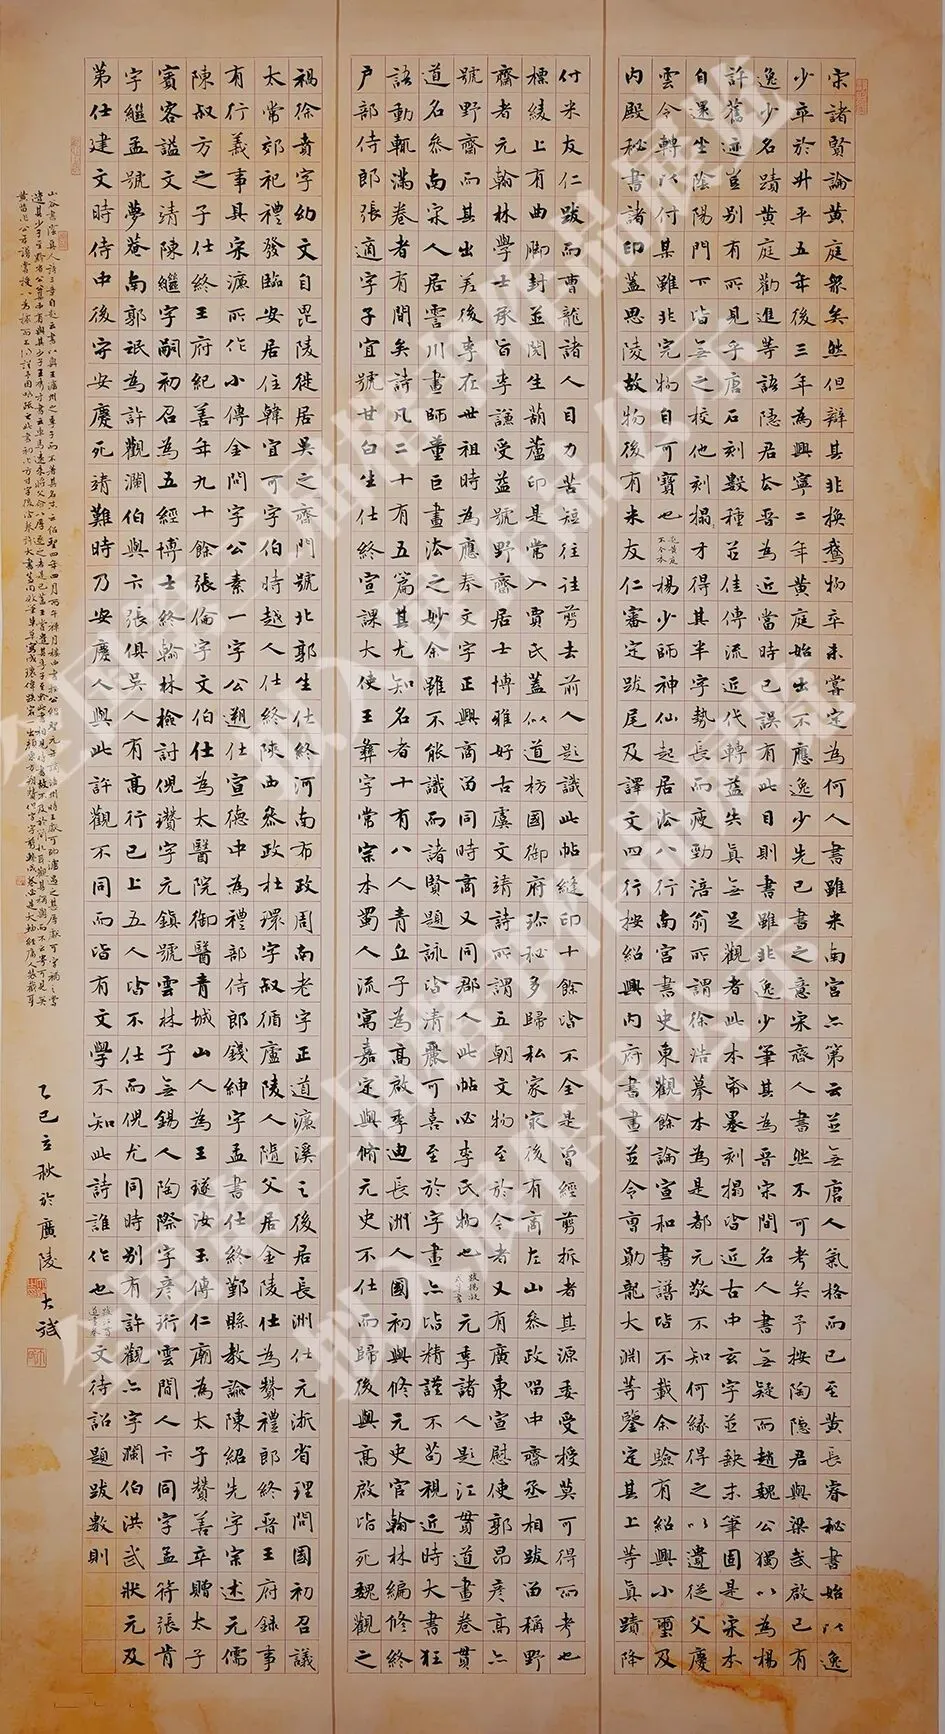 宋諸賢論黃庭衆矣然但辯其非換鵞物卒未嘗定為何人書雖米南宮亦第云並無唐人氣格而已至黃長睿秘書始以逸
少卒於升平五年後三年為興寧二年黃庭始出不應逸少先已書之意宋齊人書然不可考矣予按陶隱君與梁武啟已有
逸少名蹟黃庭勸進等語隱君去晉為近當時已誤有此目則書雖非逸少筆其為晉宋間名人書無疑而趙魏公獨以為楊
許舊迹豈別有所見乎唐石刻數種苕佳傳流近代轉益失真無足觀者此本帋墨刻搨皆近古中玄字並缺末筆固是宋本
自還坐陰陽門下皆無之校他刻搨才得其半字勢長而瘦勁涪翁所謂徐浩摹本為是都元敬不知何緣得之以遺從父慶
雲令轉以付某雖非完物自可寶也右黃庭不全本楊少師神仙起居法八行南宮書史東觀餘論宣和書譜皆不載余驗有紹興小璽及
內殿秘書諸印蓋思陵故物後有米友仁審定跋尾及譯文四行按紹興內府書畫並令曹勛龍大淵等鑒定其上等真蹟降
付米友仁跋而曹龍諸人目力苦短往往剪去前人題識此帖縫印十餘皆不全是曾經剪拆者其源委受授莫可得而考也
標綾上有曲脚封並閱生葫蘆印是常入賈氏蓋似道枋國御府珎秘多歸私家最後有商左山參政唱中齋丞相跋留稱野
齋者元翰林學士承旨李謙受益號野齋居士博雅好古虞文靖詩所謂五朝文物至於今者又有廣東宣慰使郭昂彥高亦
號野齋而其出差後李在世祖時為應奉文字正與商留同時商又同郡人此帖必李氏物也元季諸人題江貫道畫卷貫
道名參南宋人居霅川畫師董巨畫法之妙余雖不能識而諸賢題詠皆清麗可喜至於字畫亦皆精謹不苟視近時大書狂
語動輒滿卷者有間矣詩凡二十有五篇其尤知名者十有八人青丘子為高啟季迪長洲人國初與修元史官翰林編修終
戶部侍郎張適字子宜號甘白生仕終宣課大使王彝字常宗本蜀人流寓嘉定與脩元史不仕而歸後與高啟皆死魏觀之
禍徐賁字幼文自毘陵徙居吳之齊門號北郭生仕終河南布政周南老字正道濂溪之後居長洲仕元浙省理問國初召議
太常郊祀禮發臨安居住韓宜可字伯時越人仕終陝西參政杜環字叔循廬陵人隨父居金陵仕為贊禮郎終晉王府錄事
有行義事具宋濂所作小傳金問字公素一字公遡仕宣德中為禮部侍郎錢紳字孟書仕終鄞縣教諭陳紹先字宗述元儒
陳叔方之子仕終王府紀善年九十餘張倫字文伯仕為大醫院御醫青城山人為王璲汝玉傳仁廟為太子贊善卒贈太子
賓客謚文靖陳繼字嗣初召為五經博士終翰林檢討倪瓚字元鎮號雲林子無錫人陶際字彥珩雲間人卞同字孟符張肯
字繼孟號夢菴南郭泯為許觀瀾伯與六張俱吳人有高行已上五人皆不仕而倪尤同時別有許觀亦字瀾伯洪武狀元及
第仕建文時侍中後字安慶死靖難時乃安慶人與此許觀不同而皆有文學不知此詩誰作也文待詔題跋數則
乙巳立秋於廣陵大斌
全国第三届楷书作品展览
拟入展作品公示
全国第三届楷书作品展览
拟入展作品公示